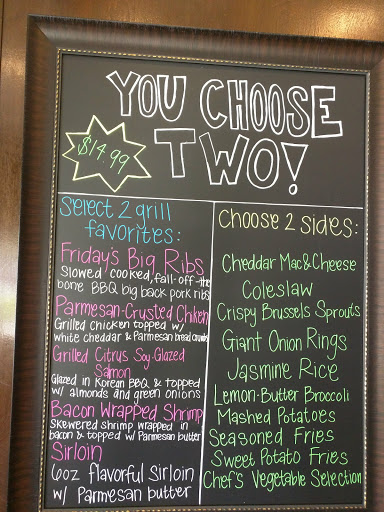 YOU CHOOSE
$14.99
TWO!
Select 2 grill
favorites:
Friday's Big Ribs
Slowed cooked, fall-off-the
bone BBQ big back pork ribs
Parmesan-Crusted Chicken
Grilled chicken topped w/
white cheddar & Parmesan bread crumbs
Grilled Citrus Soy-Glazed
Salmon
Glazed in Korean BBQ & topped
w/ almonds and green onions
Bacon Wrapped Shrimp
Skewered shrimp wrapped in
bacon & topped w/ Parmesan butter
Sirloin
6oz flavorful Sirloin
w/ Parmesan butter
Choose 2 sides:
Cheddar Mac & Cheese
Coleslaw
Crispy Brussels Sprouts
Giant Onion Rings
Jasmine Rice
Lemon-Butter Broccoli
Mashed Potatoes
Seasoned Fries
Sweet Potato Fries
Chef's Vegetable Selection